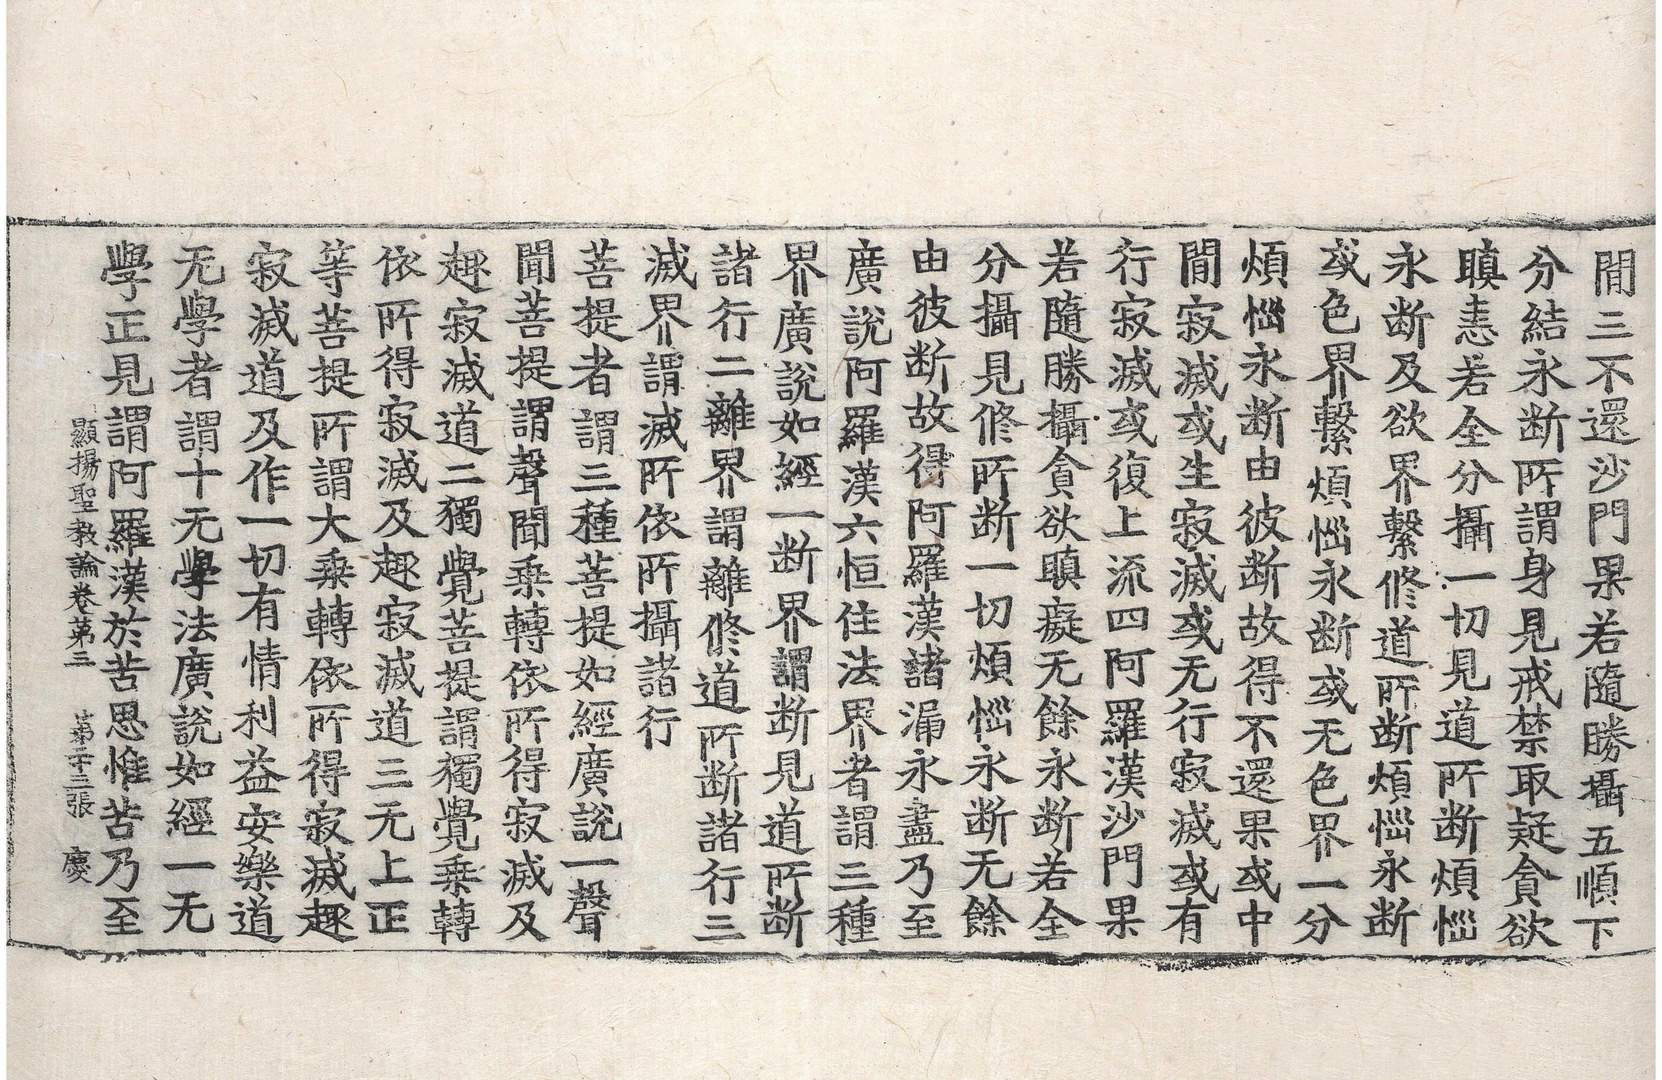 間三不還沙門果若隨勝攝五順下
分結永断所謂身見戒禁取疑貪欲
瞋恚若全分攝一切見道所断煩惱
永断及欲界繫修道所断煩惱永断
或色界繫煩惱永断或无色界一分
煩惱永断由彼断故得不還果或中
間寂滅或生寂滅或无行寂滅或有
行寂滅或復上流四阿羅漢沙門果
若隨勝攝貪欲瞋癡无餘永断若全
分攝見修所断一切煩惱永断无餘
由彼断故得阿羅漢諸漏永盡乃至
廣說阿羅漢六恒住法界者謂三種
界廣說如經一断界謂断見道所断
諸行二離界謂離修道所断諸行三
滅界謂滅所依所攝諸行
菩提者謂三種菩提如經廣說一聲
聞菩提謂聲聞乗轉依所得寂滅及
趣寂滅道二獨覺菩提謂獨覺乗轉
依所得寂滅及趣寂滅道三无上正
等菩提所謂大乗轉依所得寂滅趣
寂滅道及作一切有情利益安樂道
无學者謂十无學法廣說如經一无
學正見謂阿羅漢於苦思惟苦乃至
顯揚聖教論卷第三 第二十三張 慶